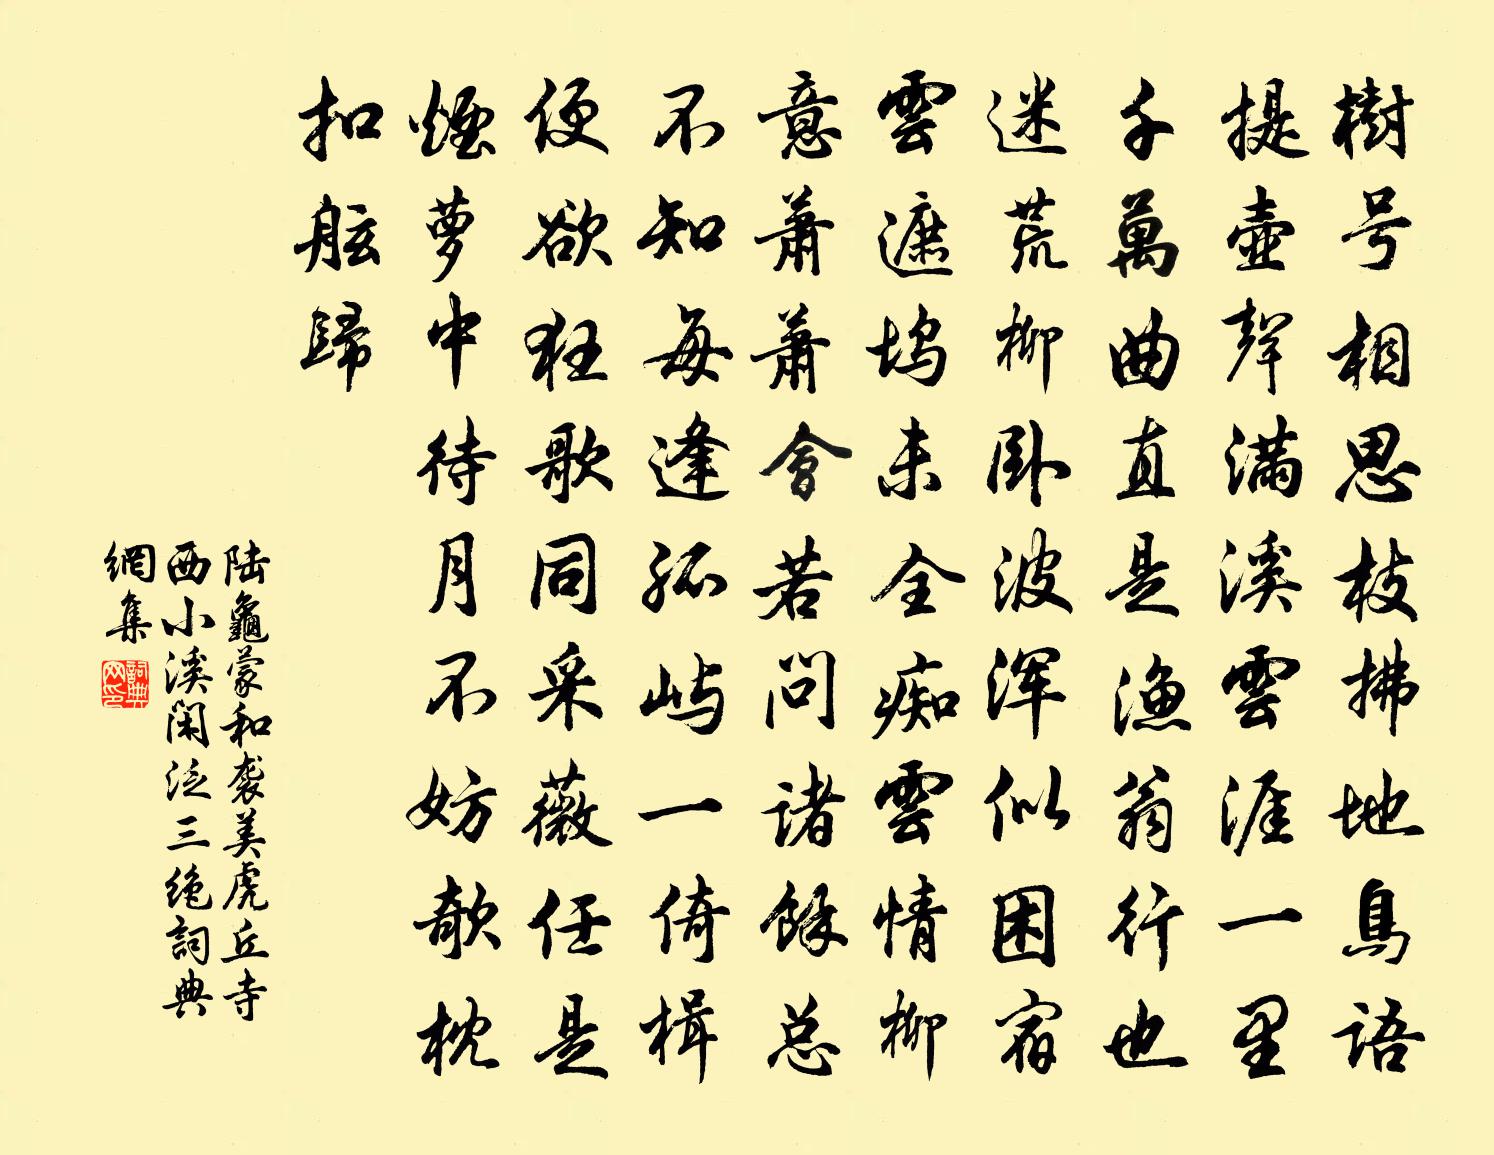 樹号相思枝拂地鳥語
提壷聲滿溪雲涯一里
千萬曲直是漁翁行也
迷荒柳卧波浑似困宿
雲遮坞未全痴雲情柳
意蕭蕭會若问诸餘总
不知每逢孤屿一倚楫
便欲狂歌同采薇任是
煙萝中待月不妨欹枕
扣舷歸
陆龜蒙和袭美虎丘寺
西小溪闲泛三绝詞典
網集
詞典
网印